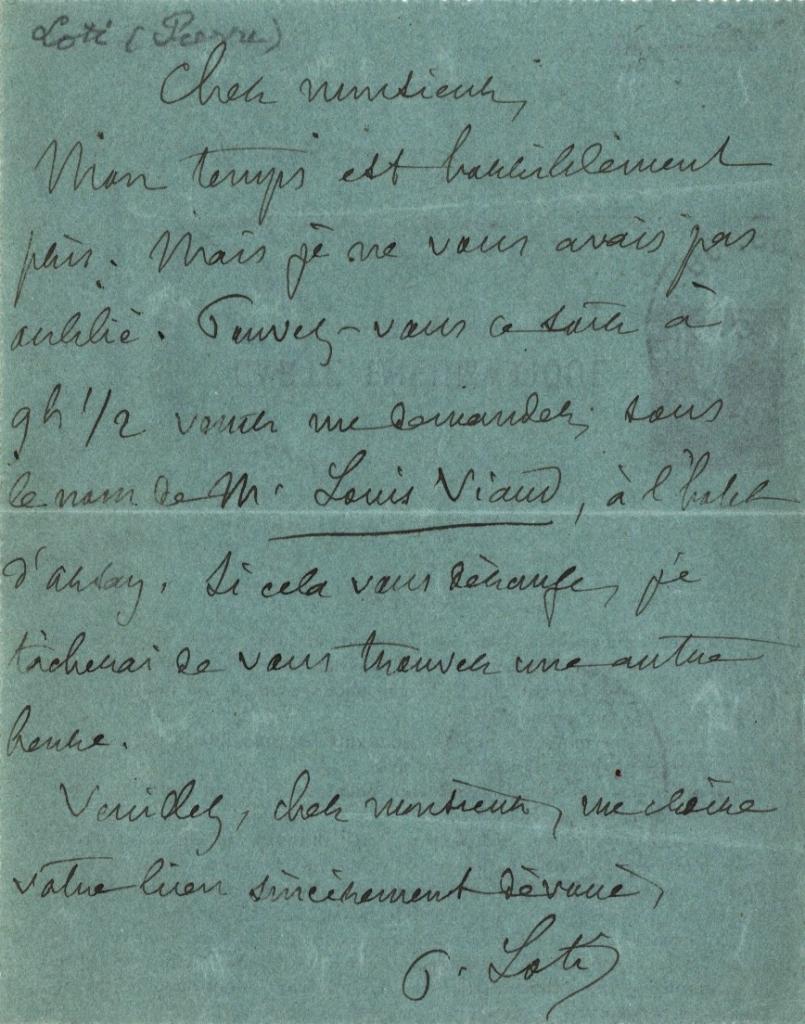 Loti (Pierre)
Cher monsieur,
Mon temps est horriblement
pris. Mais je ne vous avais pas
oublié. Pouvez-vous ce soir à
9h 1/2 venir me demander, sous
le nom de Mr Louis Viaud, à l'hôtel
d'Orsay. Si cela vous dérange, je
tâcherai de vous trouver une autre
heure.
Veuillez, cher monsieur, me croire
votre bien sincèrement dévoué,
P. Loti